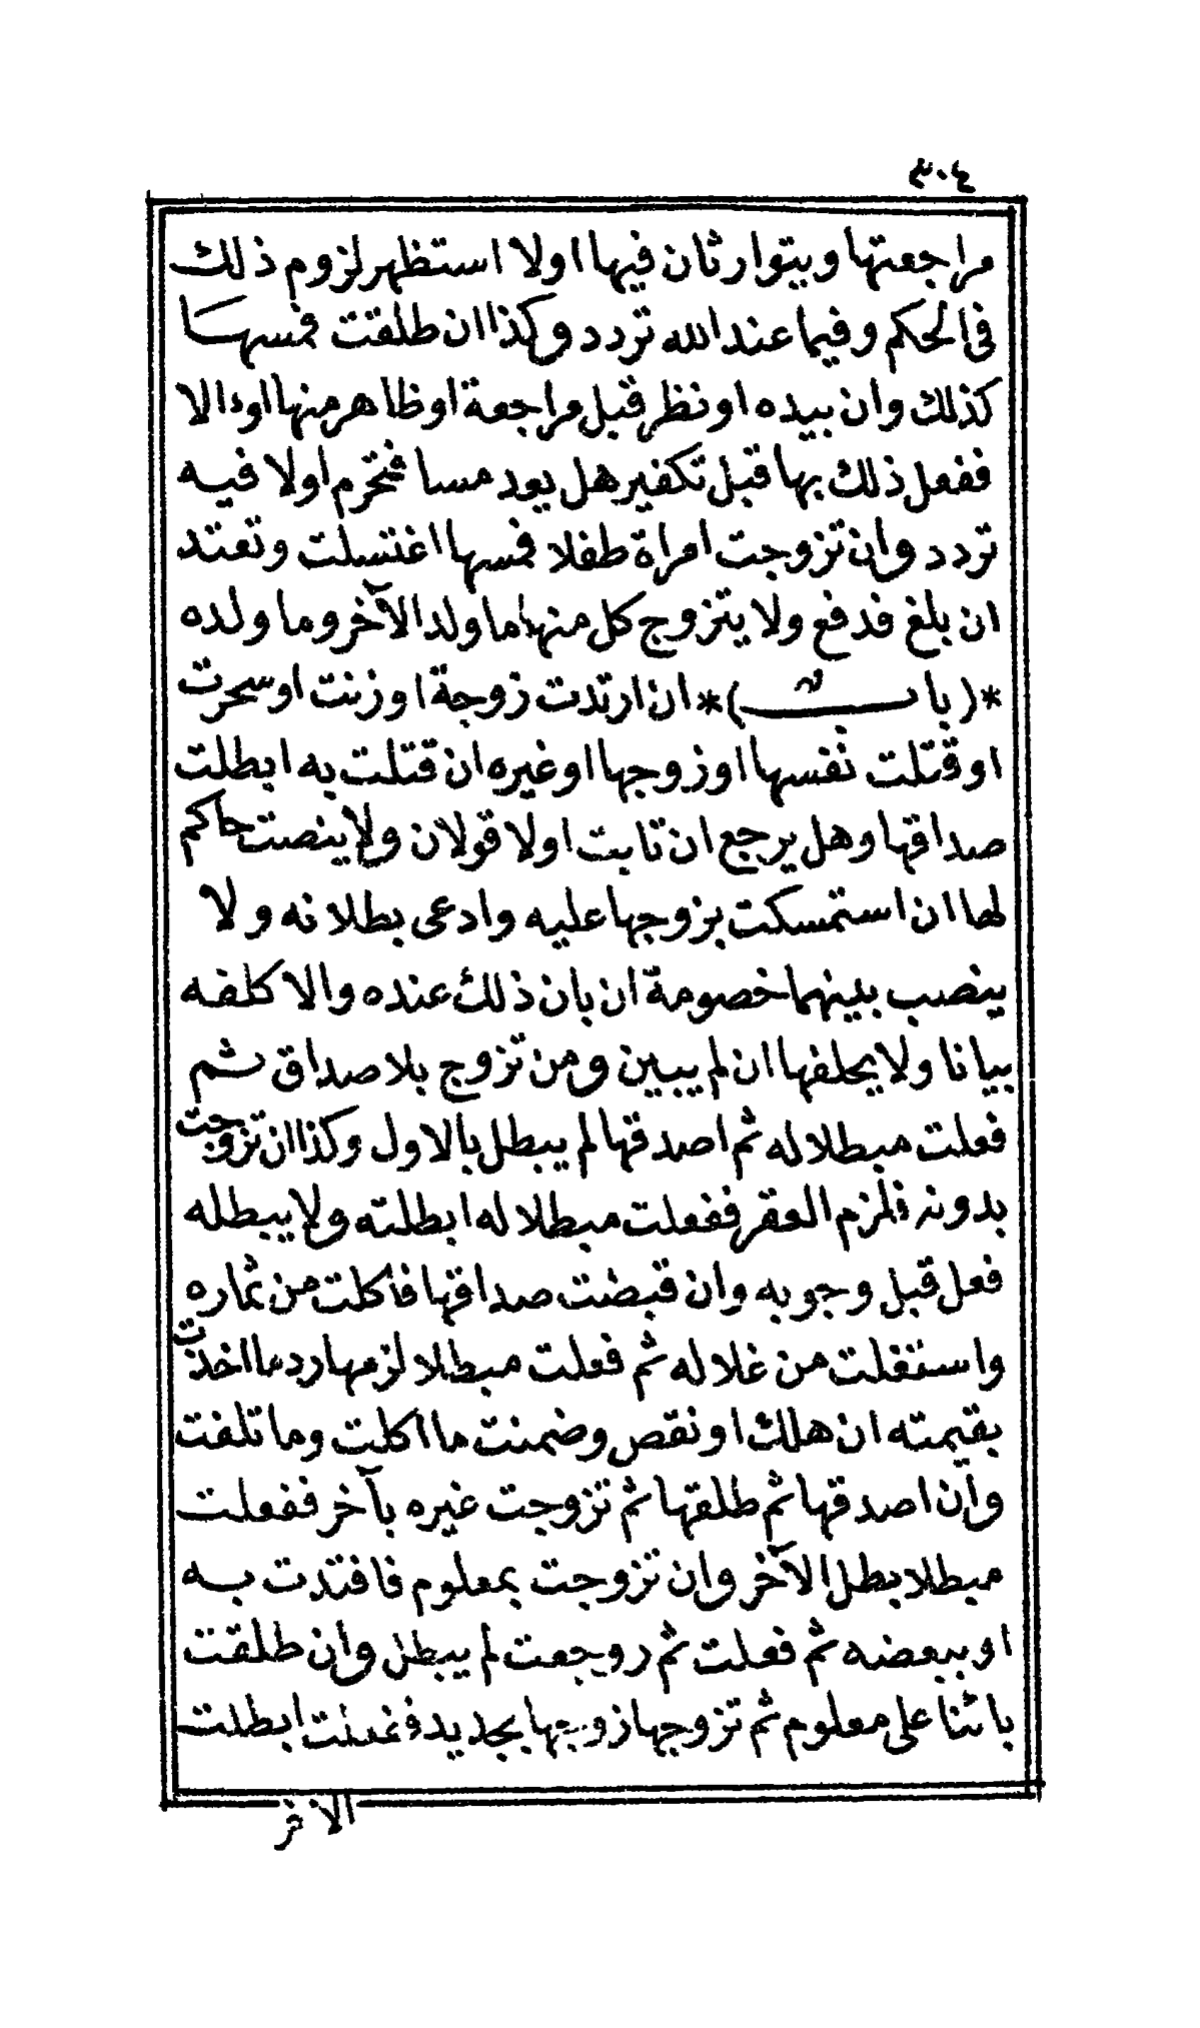 ٣٠٤
مراجعتها ويتوارثان فيها اولا استظهر لزوم ذلك
فى الحكم وفيما عند الله تردد وكذا ان طلقت فمسهـا
كذلك وان بيده او نظر قبل مراجعة او ظاهر منها اوءالا
ففعل ذلك بها قبل تكفير هل يعد مسا فتحرم اولا فيه
تردد وان تزوجت امراة طفلا فمسها اغتسلت وتعتد
ان بلغ فدفع ولا يتزوج كل منهما ما ولد الآخر وما ولده
*(باب)* ان ارتدت زوجة او زنت او سحرت
او قتلت نفسها او زوجها او غيره ان قتلت به ابطلت
صداقها وهل يرجع ان تابت اولا قولان ولا ينصت حاكم
لها ان استمسكت بزوجها عليه وادعى بطلانه ولا
ينصب بينهما خصومة ان بان ذلك عنده والا كلفه
بيانا ولا يحلفها ان لم يبين ومن تزوج بلا صداق ثم
فعلت مبطلا له ثم اصدقها لم يبطل بالاول وكذا ان تزوجت
بدونه فلزم العقر ففعلت مبطلا له ابطلته ولا يبطله
فعل قبل وجوبه وان قبضت صداقها فأكلت من ثماره
واستغلت من غلاله ثم فعلت مبطلا لزمها رد ما اخذت
بقيمته ان هلك او نقص وضمنت ما اكلت وما تلفت
وان اصدقها ثم طلقها ثم تزوجت غيره بآخر ففعلت
مبطلا بطل الآخر وان تزوجت بمعلوم فافتدت به
او ببعضه ثم فعلت ثم روجعت لم يبطل وان طلقت
بائنا على معلوم ثم تزوجها زوجها بجديد ففعلت ابطلت